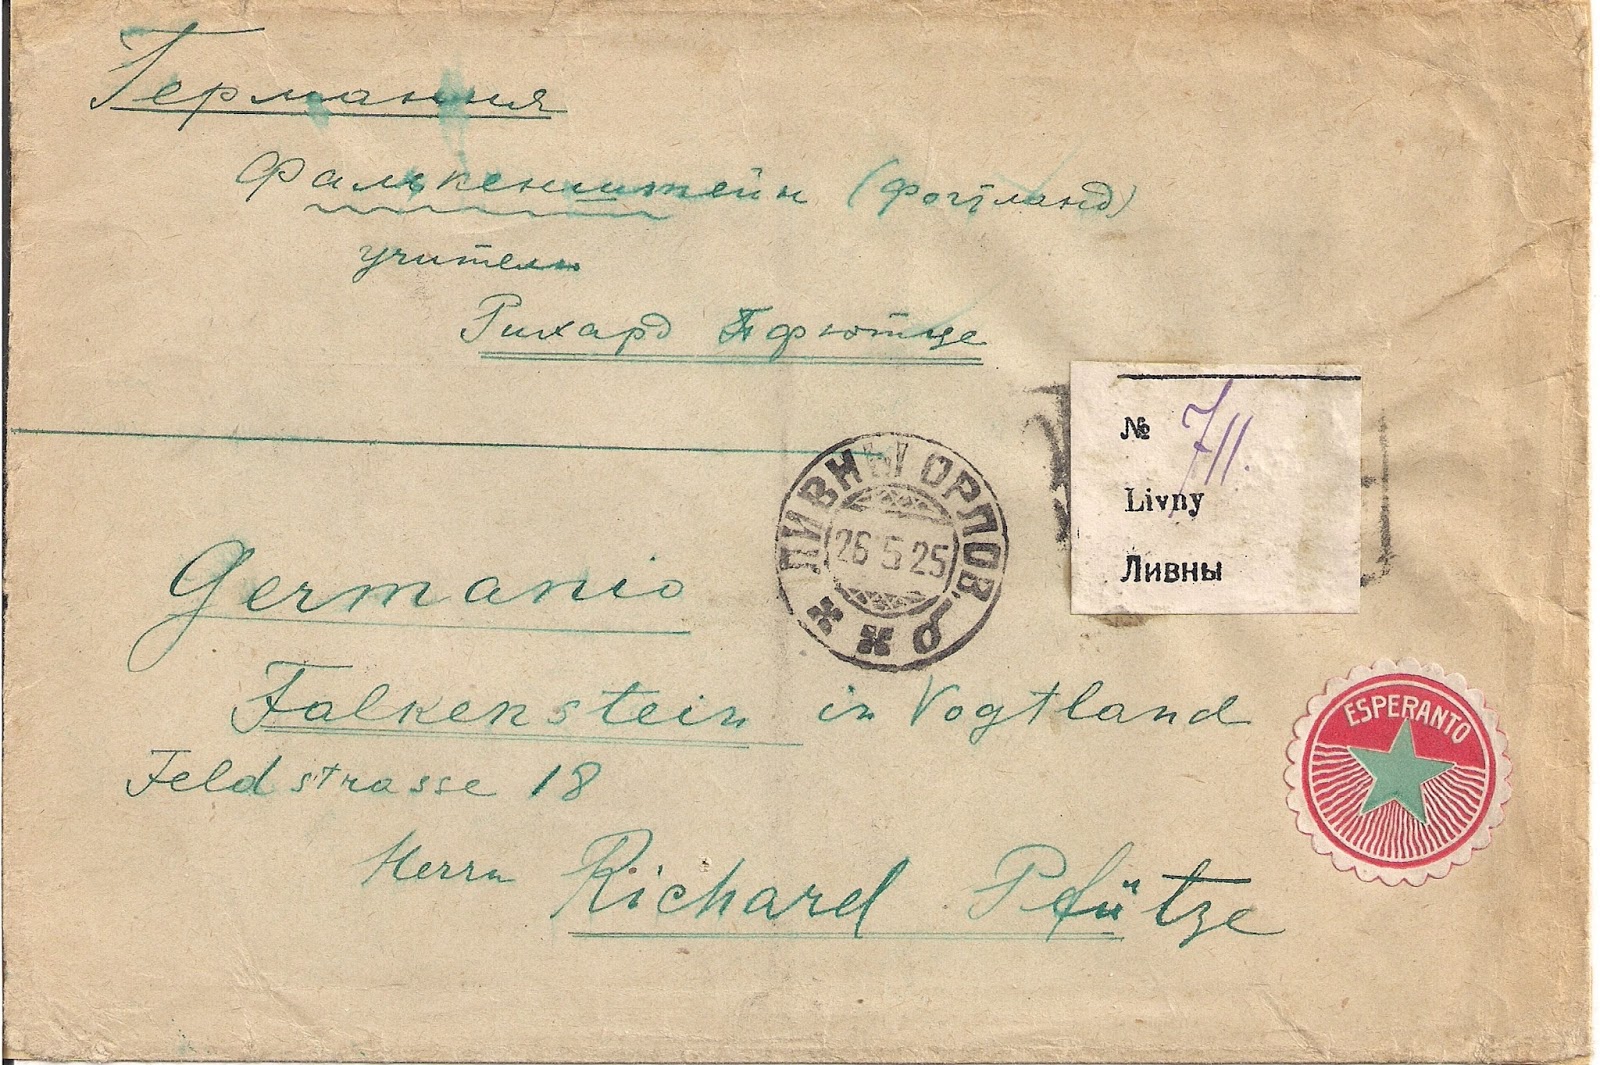 Германия
Фалькенштейн (Фогтланд)
учитель
Рихард Пфютце
№ 711.
Livny
Ливны
ЛИВНЫ ОРЛОВ.
26 5 25
Germanio
Falkenstein in Vogtland
Feldstrasse 18
Herrn Richard Pfütze
ESPERANTO